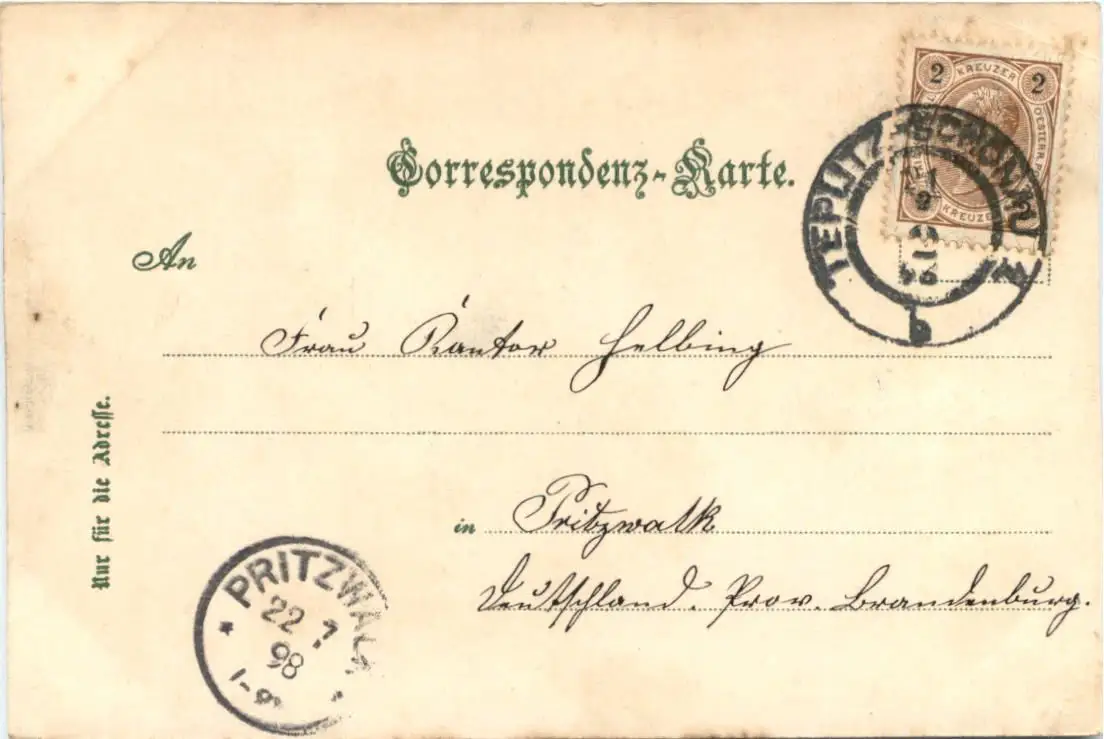 2 KREUZER 2
KREUZER
TEPLITZ-SCHÖNAU
b
Correspondenz-Karte.
An
Frau Kantor Helbing
Nur für die Adresse.
in Pritzwalk
Deutschland. Prov. Brandenburg.
PRITZWALK
22 7
98